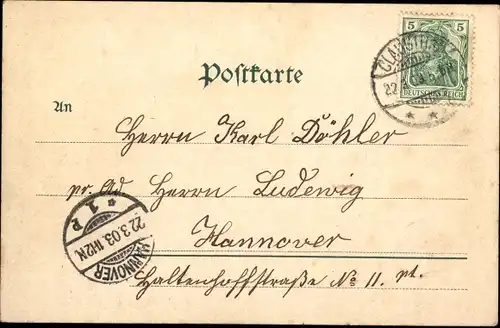 5 5
DEUTSCHES REICH
CLAUSTHAL
22
Postkarte
An
Herrn Karl Döhler
pr. Ad Herrn Ludewig
Hannover
Haltenhoffstraße No 11. pt.
HANNOVER
22.3.03. 1-12N
* 1 P